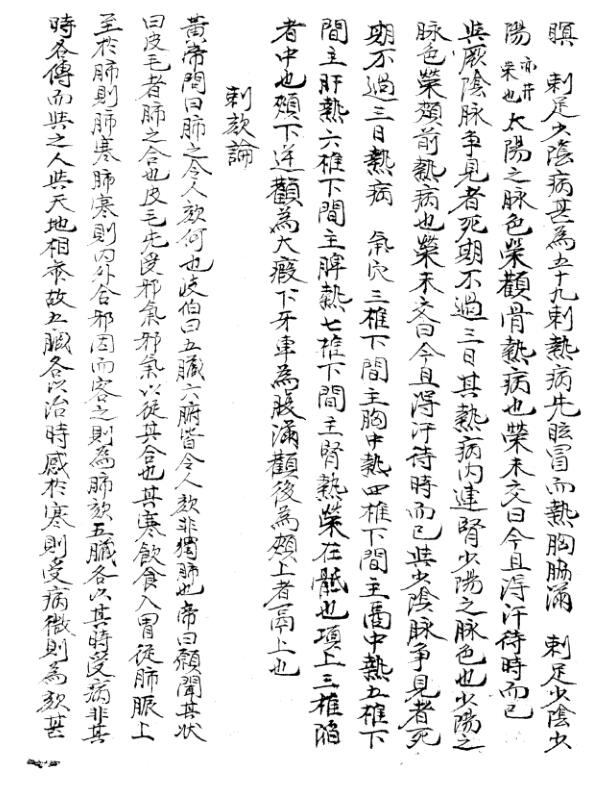 瞑　刺足少陰病甚為五十九刺熱病先眩冒而熱胸脇滿　刺足少陰少
陽亦井荣也太陽之脉色榮顴骨熱病也榮未交曰今且淂汗待時而已
與厥陰脉争見者死期不過三日其熱病内連腎少陽之脉色也少陽之
脉色榮頰前熱病也榮未交曰今且淂汗待時而已與少陰脉争見者死
期不過三日熱病　氣穴三椎下間主胸中熱四椎下間主鬲中熱五椎下
間主肝熱六椎下間主脾熱七椎下間主腎熱榮在骶也項上三椎陷
者中也頰下逆顴為大瘕下牙車為腹滿顴後為頰上者鬲上也
刺欬論
黃帝問曰肺之令人欬何也岐伯曰五臓六腑皆令人欬非獨肺也帝曰願聞其状
曰皮毛者肺之合也皮毛先受邪氣邪氣以從其合也其寒飲食入胃從肺脈上
至於肺則肺寒肺寒則内外合邪因而客之則為肺欬五臓各以其時受病非其
時各傳而與之人與天地相参故五臓各以治時感於寒則受病微則為欬甚